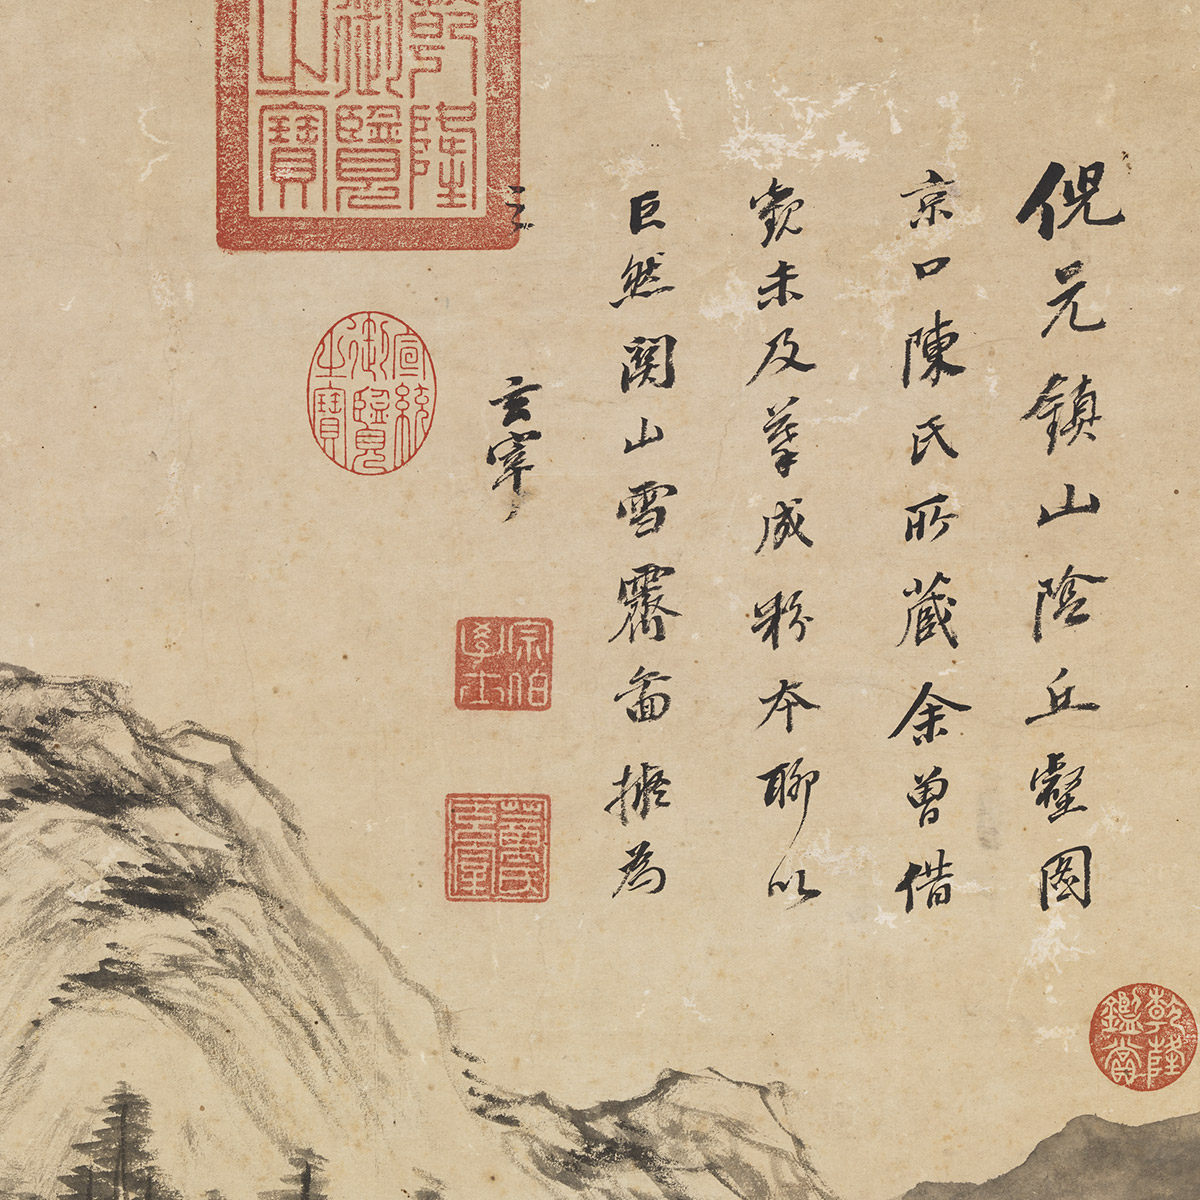 倪元鎮山陰丘壑圖
京口陳氏所藏余曾借
觀未及摹成粉本聊以
巨然關山雪霽啚擬為
之
玄宰
乾隆御覽之寶
宣統御覽之寶
宗伯學士
董氏玄宰
乾隆鑑賞